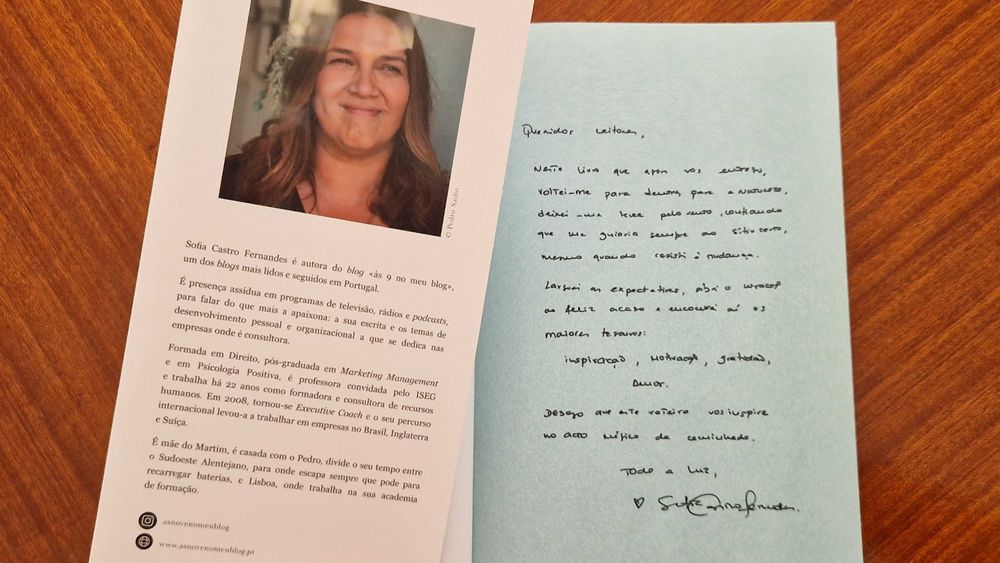 © Pedro Sadio
Sofia Castro Fernandes é autora do blog «às 9 no meu blog»,
um dos blogs mais lidos e seguidos em Portugal.
É presença assídua em programas de televisão, rádios e podcasts,
para falar do que mais a apaixona: a sua escrita e os temas de
desenvolvimento pessoal e organizacional a que se dedica nas
empresas onde é consultora.
Formada em Direito, pós-graduada em Marketing Management
e em Psicologia Positiva, é professora convidada pelo ISEG
e trabalha há 22 anos como formadora e consultora de recursos
humanos. Em 2008, tornou-se Executive Coach e o seu percurso
internacional levou-a a trabalhar em empresas no Brasil, Inglaterra
e Suíça.
É mãe do Martim, é casada com o Pedro, divide o seu tempo entre
o Sudoeste Alentejano, para onde escapa sempre que pode para
recarregar baterias, e Lisboa, onde trabalha na sua academia
de formação.
asnovenomeublog
www.asnovenomeublog.pt
Queridos leitores,
Neste livro que agora vos entrego,
voltei-me para dentro, para a Natureza,
deixei-me levar pelo vento, confiando
que me guiaria sempre ao sítio certo,
mesmo quando resisti à mudança.
Larguei as expectativas, abri o coração
ao feliz acaso e encontrei aí os
maiores tesouros:
inspiração, motivação, gratidão,
Amor.
Desejo que este roteiro vos inspire
no acto mítico da caminhada.
Todo a Luz,
♡ Sofia Castro Fernandes.